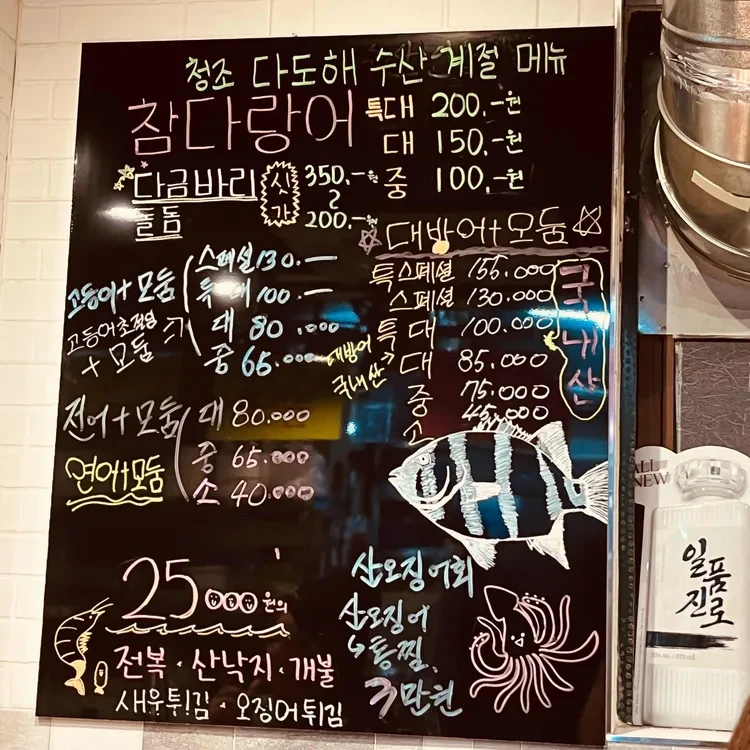 청조 다도해 수산 계절 메뉴
참다랑어 특대 200.-원
대 150.-원
중 100.-원
다금바리
돌돔
시가
350.-원
200.-원
고등어+모둠
고등어초절임
+모둠
스페셜 130.-
특대 100.-
대 80.000
중 65.000
대방어+모둠
특스페셜 155.000
스페셜 130.000
특대 100.000
대 85.000
중 75.000
소 45.000
국내산
대방어
국내산
전어+모둠
연어+모둠
대 80.000
중 65.000
소 40.000
25000원의
전복·산낙지·개불
새우튀김·오징어튀김
산오징어회
산오징어
통찜
3만원
ALL
NEW
일품
진로